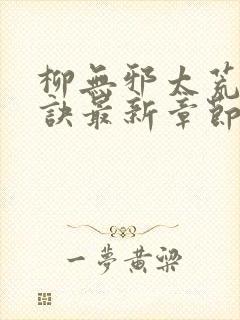 柳無邪太荒
訣最新章節
一夢黃粱